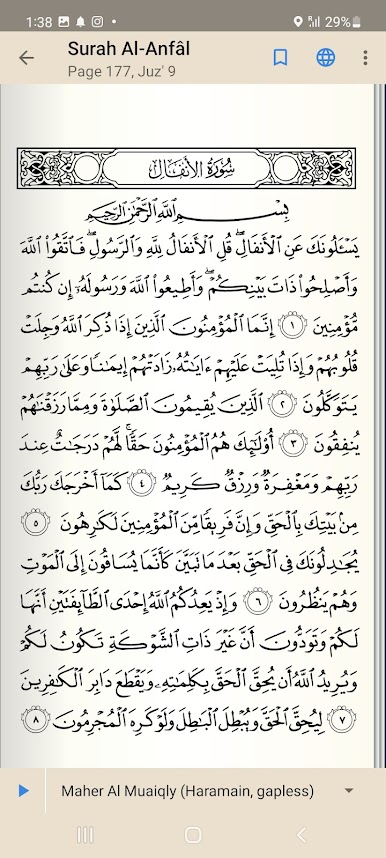 1:38
29%
Surah Al-Anfâl
Page 177, Juz' 9
سُورَةُ الأَنفَالِ
بِسْمِ ٱللَّهِ ٱلرَّحْمَٰنِ ٱلرَّحِيمِ
يَسْـَٔلُونَكَ عَنِ ٱلْأَنفَالِۖ قُلِ ٱلْأَنفَالُ لِلَّهِ وَٱلرَّسُولِۖ فَٱتَّقُوا۟ ٱللَّهَ
وَأَصْلِحُوا۟ ذَاتَ بَيْنِكُمْۖ وَأَطِيعُوا۟ ٱللَّهَ وَرَسُولَهُۥٓ إِن كُنتُم
مُّؤْمِنِينَ ١ إِنَّمَا ٱلْمُؤْمِنُونَ ٱلَّذِينَ إِذَا ذُكِرَ ٱللَّهُ وَجِلَتْ
قُلُوبُهُمْ وَإِذَا تُلِيَتْ عَلَيْهِمْ ءَايَٰتُهُۥ زَادَتْهُمْ إِيمَٰنًا وَعَلَىٰ رَبِّهِمْ
يَتَوَكَّلُونَ ٢ ٱلَّذِينَ يُقِيمُونَ ٱلصَّلَوٰةَ وَمِمَّا رَزَقْنَٰهُمْ
يُنفِقُونَ ٣ أُو۟لَٰٓئِكَ هُمُ ٱلْمُؤْمِنُونَ حَقًّاۚ لَّهُمْ دَرَجَٰتٌ عِندَ
رَبِّهِمْ وَمَغْفِرَةٌ وَرِزْقٌ كَرِيمٌ ٤ كَمَآ أَخْرَجَكَ رَبُّكَ
مِنۢ بَيْتِكَ بِٱلْحَقِّ وَإِنَّ فَرِيقًا مِّنَ ٱلْمُؤْمِنِينَ لَكَٰرِهُونَ ٥
يُجَٰدِلُونَكَ فِى ٱلْحَقِّ بَعْدَ مَا تَبَيَّنَ كَأَنَّمَا يُسَاقُونَ إِلَى ٱلْمَوْتِ
وَهُمْ يَنظُرُونَ ٦ وَإِذْ يَعِدُكُمُ ٱللَّهُ إِحْدَى ٱلطَّآئِفَتَيْنِ أَنَّهَا
لَكُمْ وَتَوَدُّونَ أَنَّ غَيْرَ ذَاتِ ٱلشَّوْكَةِ تَكُونُ لَكُمْ
وَيُرِيدُ ٱللَّهُ أَن يُحِقَّ ٱلْحَقَّ بِكَلِمَٰتِهِۦ وَيَقْطَعَ دَابِرَ ٱلْكَٰفِرِينَ
٧ لِيُحِقَّ ٱلْحَقَّ وَيُبْطِلَ ٱلْبَٰطِلَ وَلَوْ كَرِهَ ٱلْمُجْرِمُونَ ٨
Maher Al Muaiqly (Haramain, gapless)